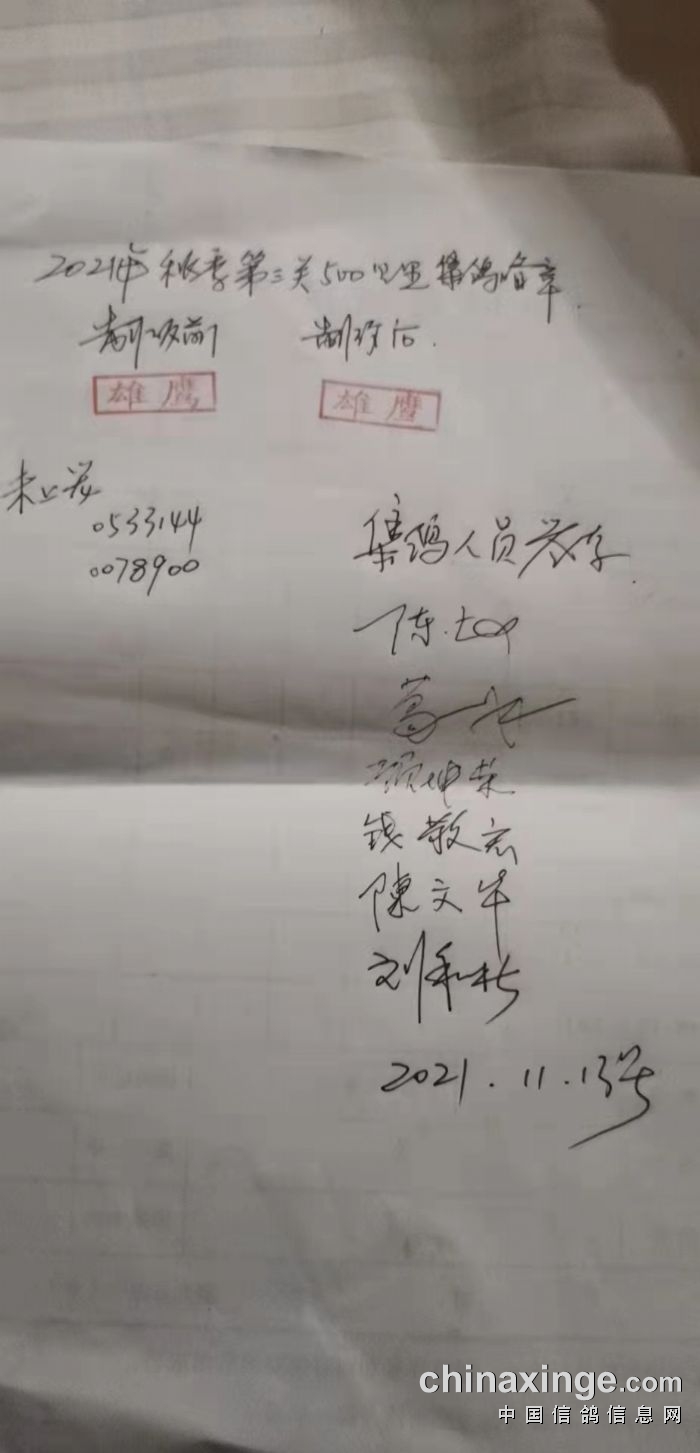 2021年秋季第三关500公里集鸽暗章
制作前 制作后
雄鹰 雄鹰
未上笼
0533144
0078900
集鸽人员签字
陈
葛
项坤荣
钱敬宏
陳文华
刘和松
2021.11.13号
chinaxinge.com
中国信鸽信息网